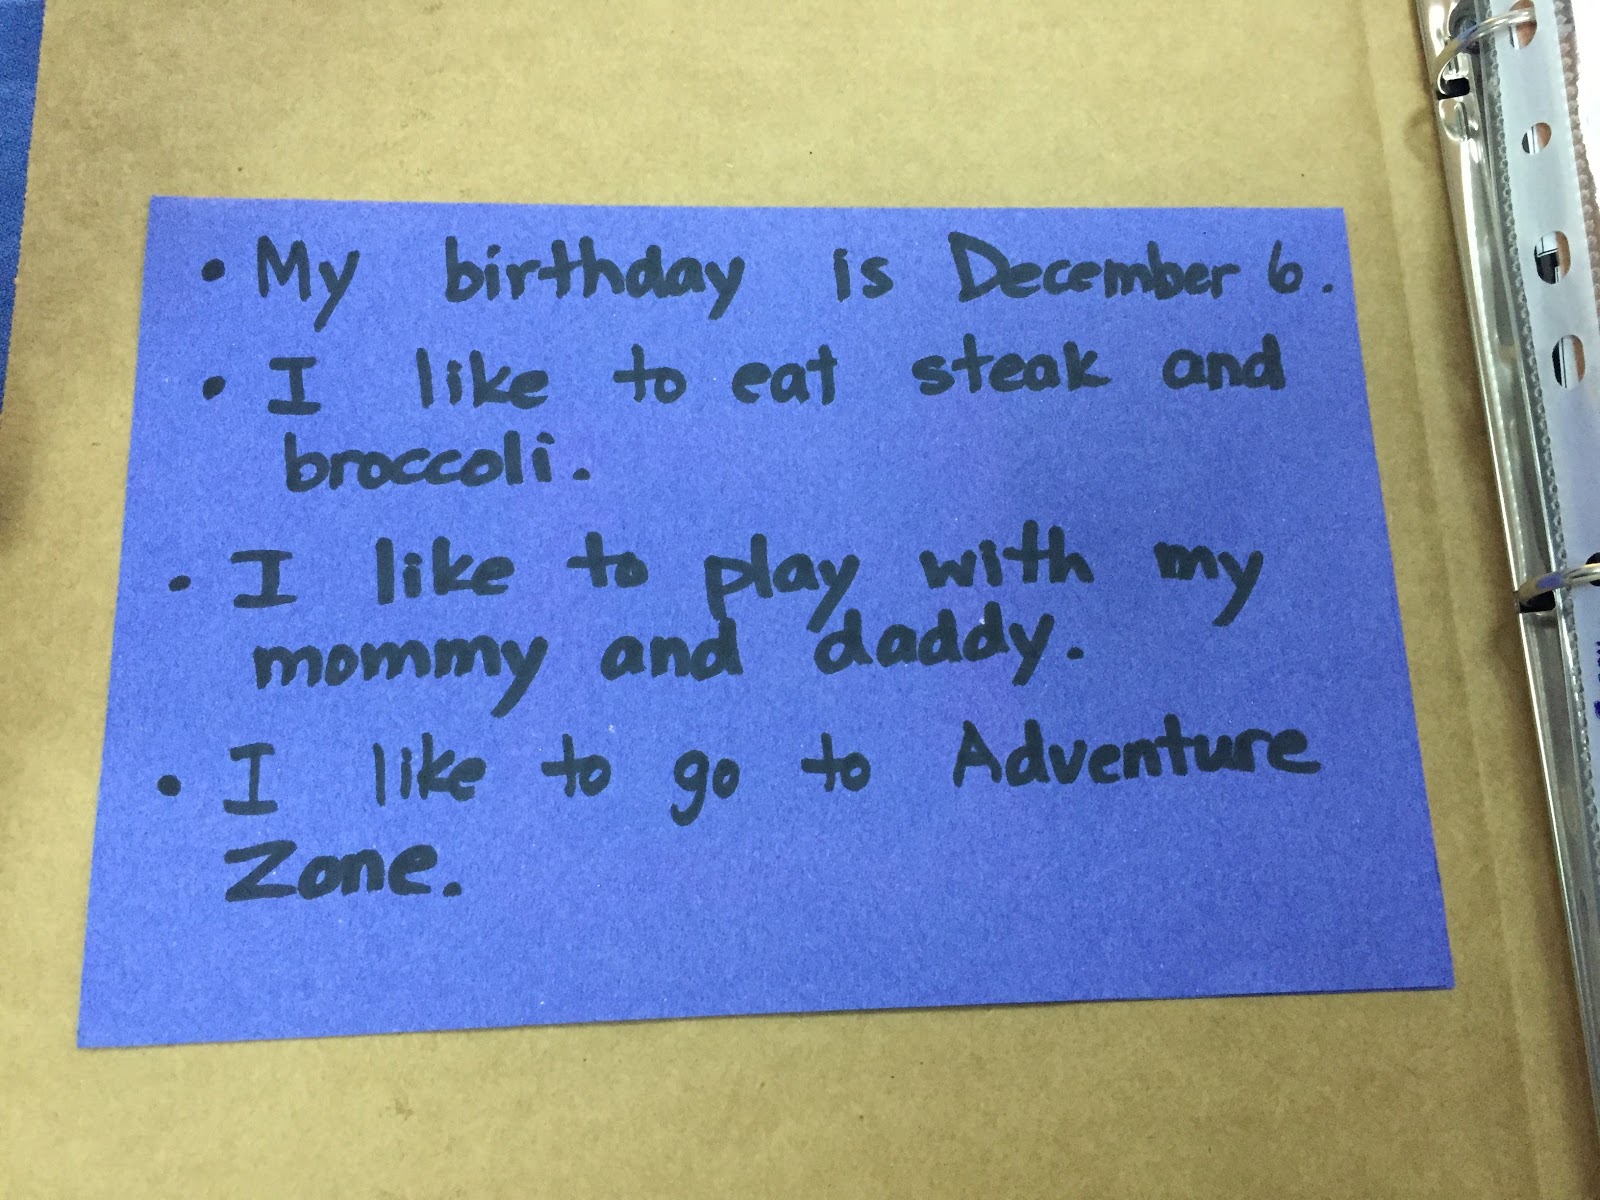 • My birthday is December 6.
• I like to eat steak and
broccoli.
• I like to play with my
mommy and daddy.
• I like to go to Adventure
Zone.